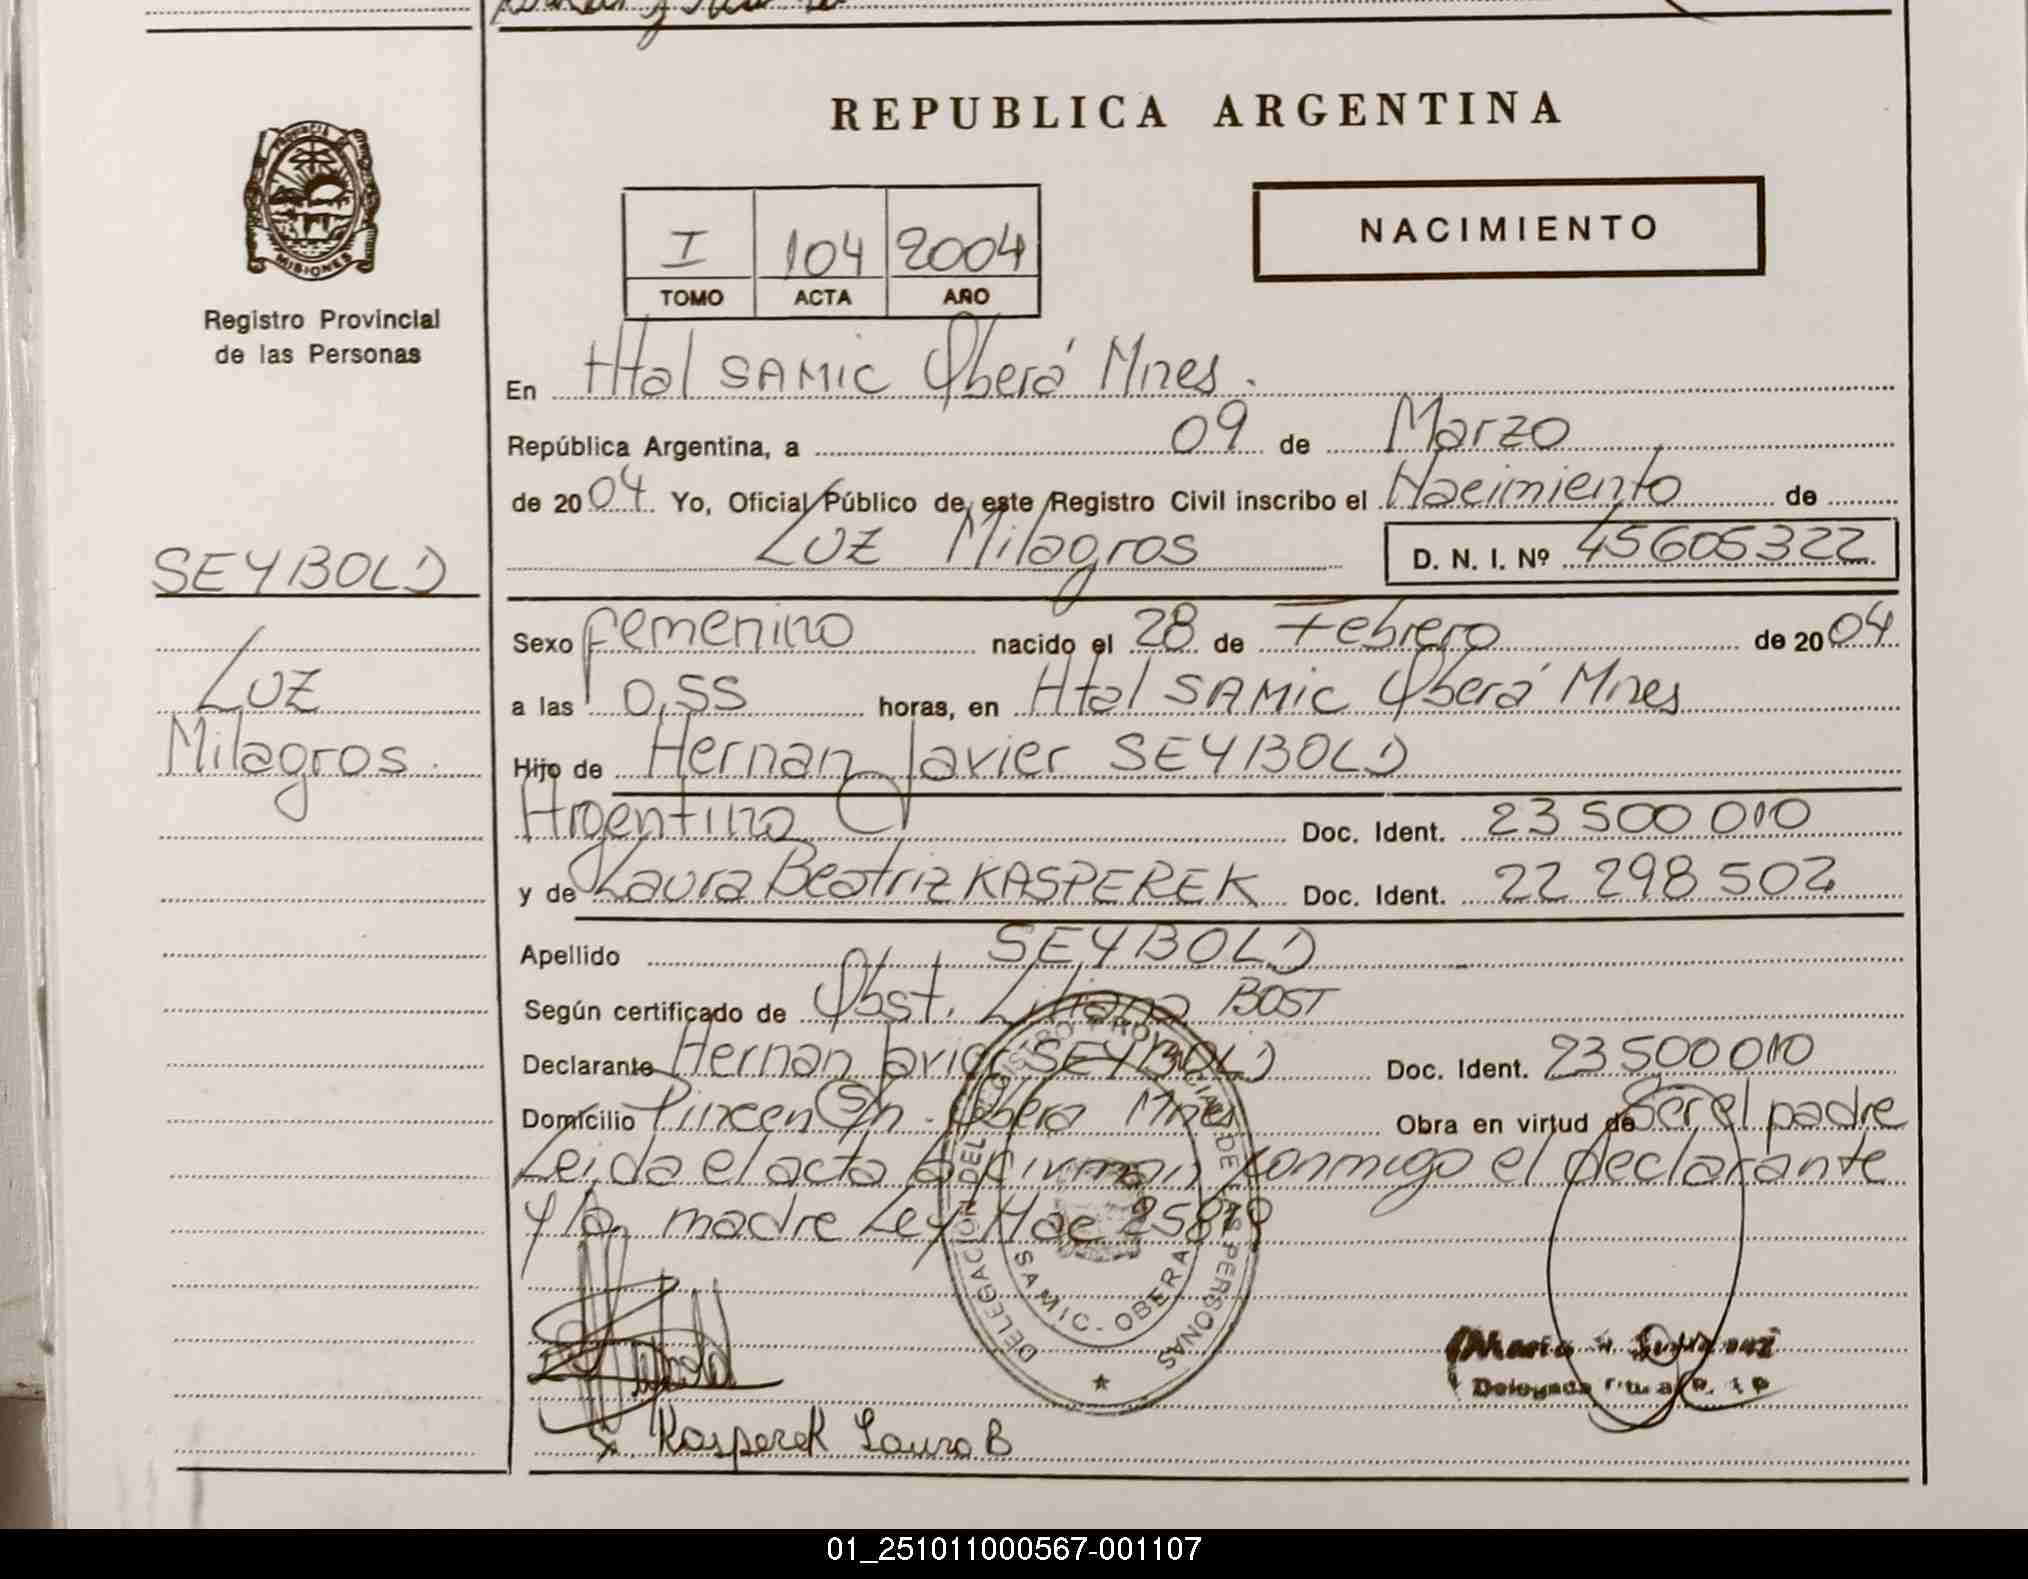 REPUBLICA ARGENTINA
PROVINCIA DE
MISIONES
Registro Provincial
de las Personas
NACIMIENTO
I 104 2004
TOMO ACTA AÑO
En Htal SAMIC Oberá Mnes.
República Argentina, a 09 de Marzo
de 2004 Yo, Oficial Público de este Registro Civil inscribo el Nacimiento de
Luz Milagros D. N. I. Nº 45605322
SEYBOLD
Luz
Milagros.
Sexo femenino nacido el 28 de Febrero de 2004
a las 0,55 horas, en Htal SAMIC Oberá Mnes
Hijo de Hernan Javier SEYBOLD
Argentino Doc. Ident. 23 500 010
y de Laura Beatriz KASPEREK Doc. Ident. 22 298 502
Apellido SEYBOLD
Según certificado de Obst. Liliana BOST
Declarante Hernan Javier SEYBOLD Doc. Ident. 23 500 010
Domicilio S/n. Oberá Mnes Obra en virtud de Ser el padre
Leida el acta la firman conmigo el declarante
y la madre Ley Nac
DELEGACION DEL REGISTRO PROVINCIAL DE LAS PERSONAS
SAMIC - OBERA
Delegada
Kasperek Laura B
01_251011000567-001107